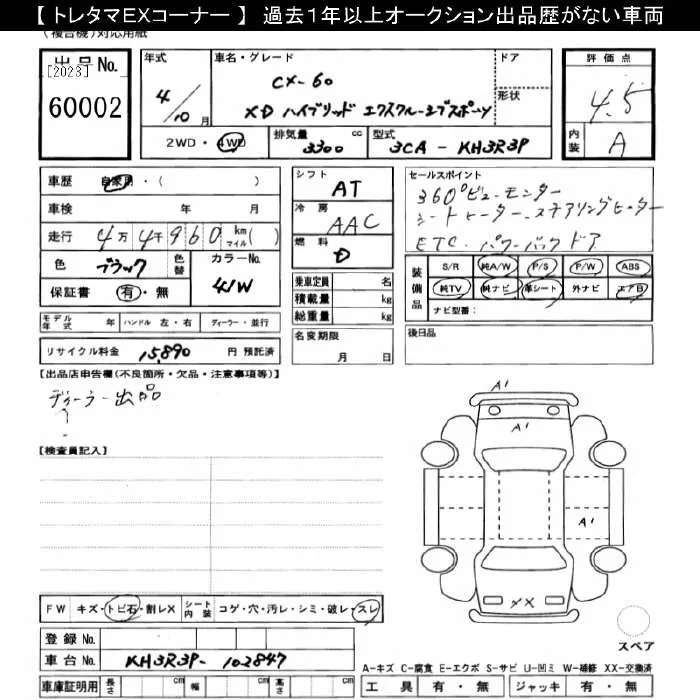 【 トレタマEXコーナー 】 過去1年以上オークション出品歴がない車両
(複合機)対応用紙
出品No.
[2023]
60002
年式
4/10月
車名・グレード
CX-60
XD ハイブリッド エクスクルーシブスポーツ
ドア
形状
評価点
4.5
2WD・4WD
排気量 3300 cc
型式 3CA - KH3R3P
内装 A
車歴 自家用・( )
車検 年 月
走行 4万4千960 km マイル( )
色 ブラック 色替
カラーNo. 41W
保証書 有・無
シフト AT
冷房 AAC
燃料 D
乗車定員 名
積載量 kg
総重量 kg
セールスポイント
360°ビューモンター
シートヒーター・ステアリングヒーター
ETC・パワーバックドア
装備品
S/R 純A/W P/S P/W ABS
純TV 純ナビ 革シート 外ナビ エアB
ナビ型番:
モデル年式 年 ハンドル 左・右 ディーラー・並行
名変期限
月 日
後日品
リサイクル料金 15,890 円 預託済
【出品店申告欄(不良箇所・欠品・注意事項等)】
ディーラー出品
【検査員記入】
A1
A1
A1
XX
FW キズ・トビ石・割レX シート内装 コゲ・穴・汚レ・シミ・破レ・スレ
スペア
登録No.
車台No. KH3R3P- 102847
A-キズ C-腐食 E-エクボ S-サビ U-凹ミ W-補修 XX-交換済
車庫証明用 長さ cm 幅 cm 高さ cm
工具 有・無 ジャッキ 有・無